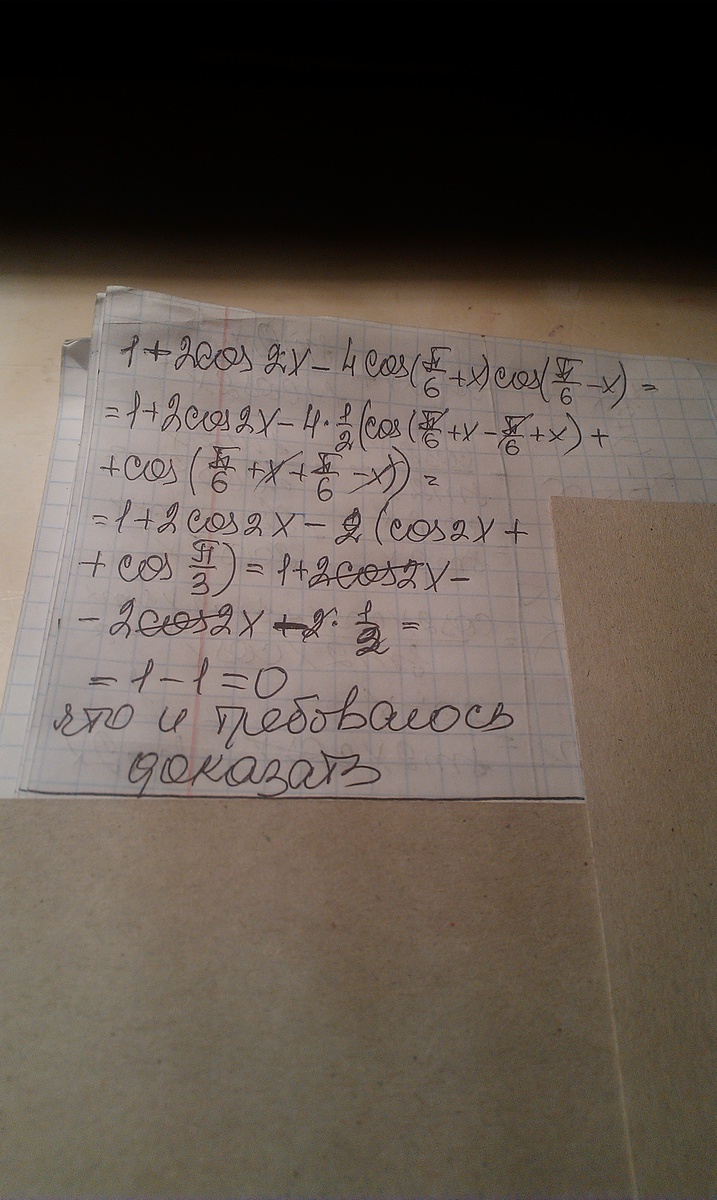 1+2cos2x-4cos(π/6+x)cos(π/6-x)=
=1+2cos2x-4·1/2(cos(π/6+x-π/6+x)+
+cos(π/6+x+π/6-x))=
=1+2cos2x-2(cos2x+
+cos π/3)=1+2cos2x-
-2cos2x-2·1/2=
=1-1=0
что и требовалось
доказать